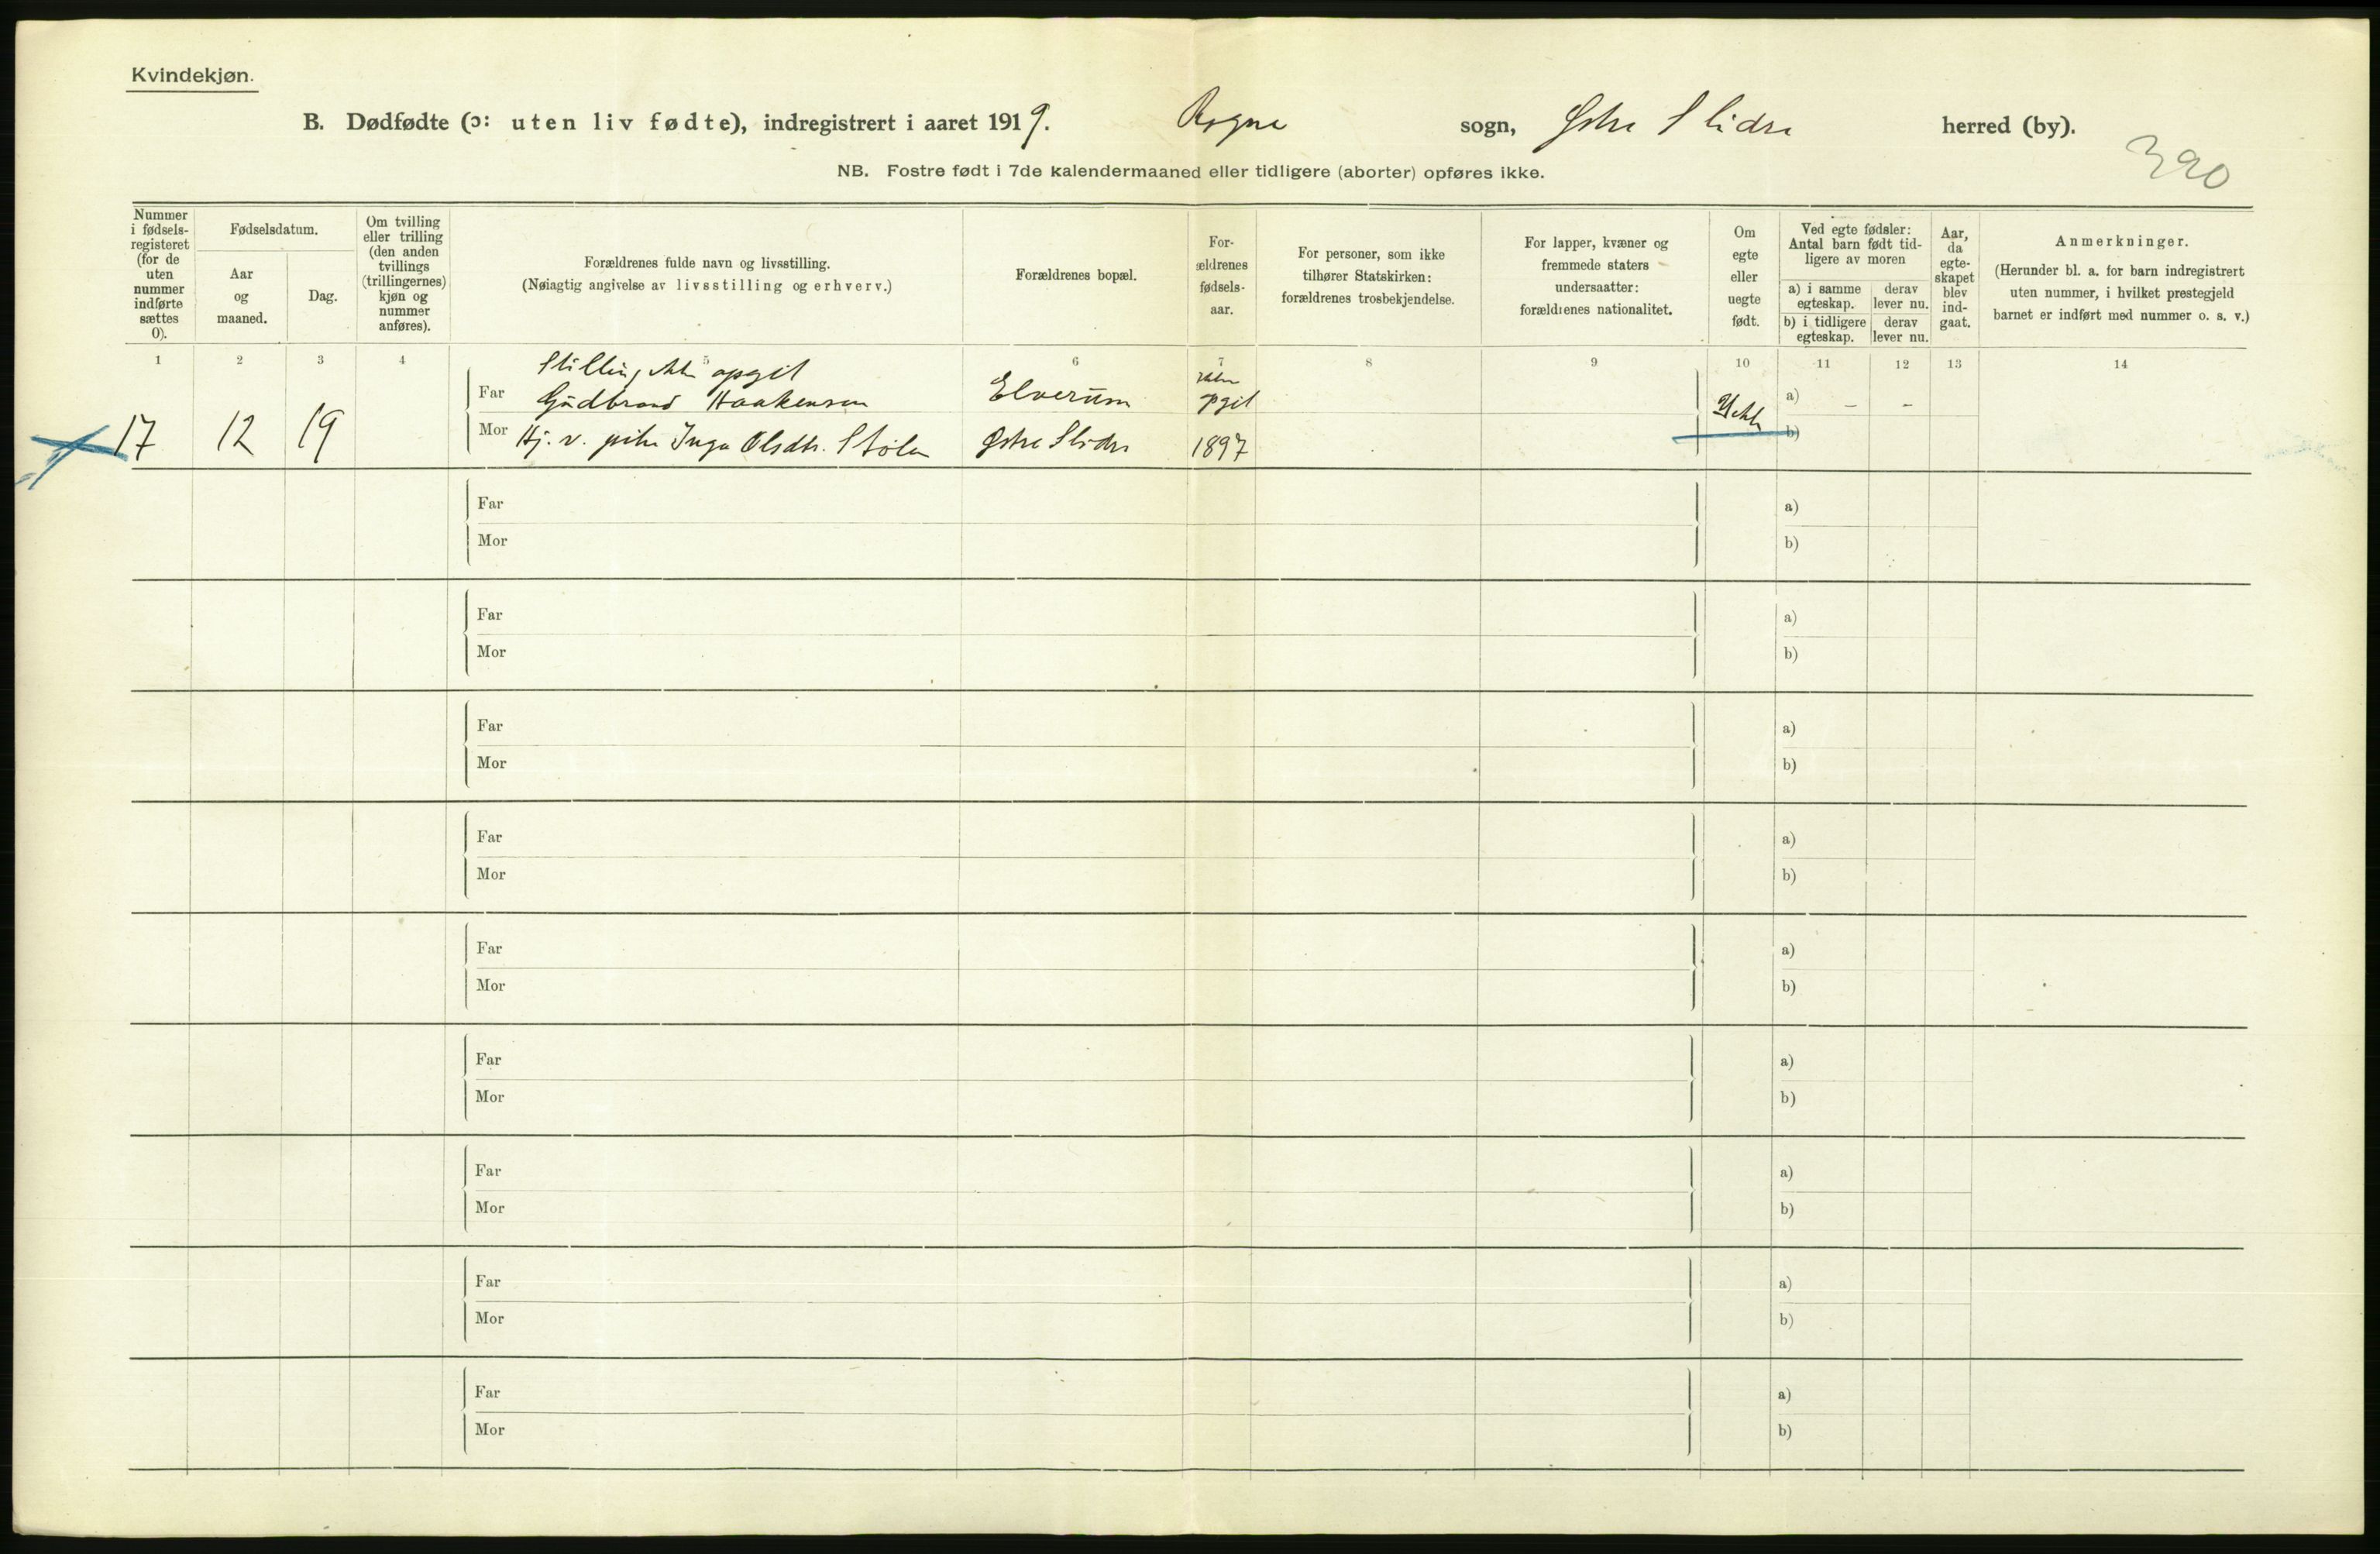 Kvindekjøn.
B. Dødfødte (ɔ: uten liv fødte), indregistrert i aaret 1919. Rogne sogn, Østre Slidre herred (by).
390
NB. Fostre født i 7de kalendermaaned eller tidligere (aborter) opføres ikke.
Nummer i fødsels-registeret (for de uten nummer indførte sættes 0).
Fødselsdatum.
Aar og maaned.
Dag.
Om tvilling eller trilling (den anden tvillings (trillingernes) kjøn og nummer anføres).
Forældrenes fulde navn og livsstilling.
(Nøiagtig angivelse av livsstilling og erhverv.)
Forældrenes bopæl.
For-ældrenes fødsels-aar.
For personer, som ikke tilhører Statskirken: forældrenes trosbekjendelse.
For lapper, kvæner og fremmede staters undersaatter: forældrenes nationalitet.
Om egte eller uegte født.
Ved egte fødsler: Antal barn født tid-ligere av moren
a) i samme egteskap.
derav lever nu.
b) i tidligere egteskap.
derav lever nu.
Aar, da egte-skapet blev ind-gaat.
Anmerkninger.
(Herunder bl. a. for barn indregistrert uten nummer, i hvilket prestegjeld barnet er indført med nummer o. s. v.)
1 2 3 4 5 6 7 8 9 10 11 12 13 14
Stilling ikke opgit ikke
Far Gudbrand Haakensen Elverum opgit a) – –
17 12 19 Mor Hj. v. pike Inga Olsdtr. Stølen Østre Slidre 1897 b)
Far a)
Mor b)
Far a)
Mor b)
Far a)
Mor b)
Far a)
Mor b)
Far a)
Mor b)
Far a)
Mor b)
Far a)
Mor b)
Far a)
Mor b)
Far a)
Mor b)